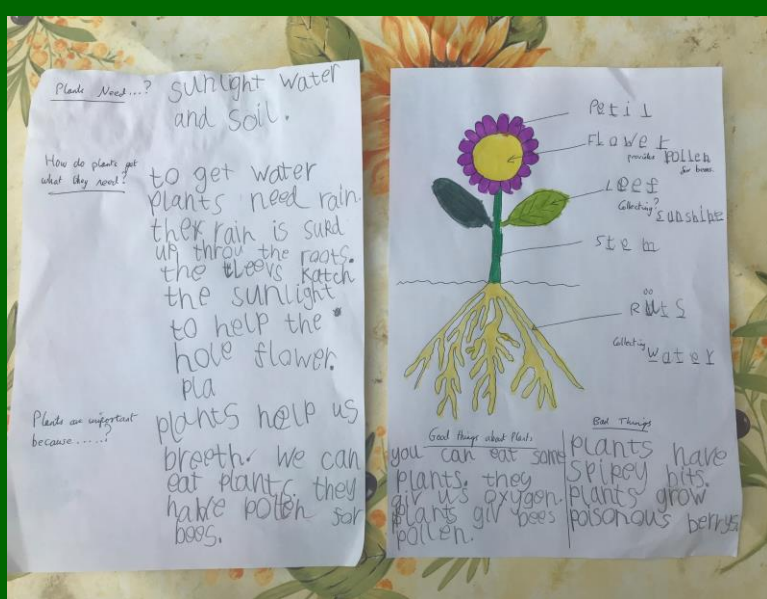 Plants Need...? sunlight water
and soil.
How do plants get
what they need?
to get water
plants need rain.
ther rain is surd
up throu the roots.
the tleevs katch
the sunlight
to help the
hole flower.
pla
Plants are important
because.....?
plants help us
breeth. we can
eat plants. they
have pollen for
bees.
Petil
Flower
provides pollen
for bees.
Leef
Collecting? sunshine
stem
Ruts
Collecting
water
Good things about Plants
you can eat some
plants. they
giv us oxygen.
plants giv bees
pollen.
Bad Things
plants have
spikey bits.
plants grow
poisonous berrys